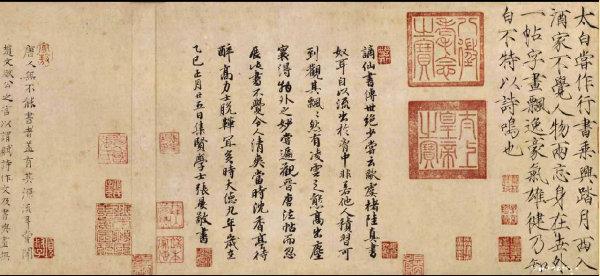 太白嘗作行書乘興踏月西入
酒家不覺人物兩忘身在世外
一帖字畫飄逸豪氣雄健乃知
白不特以詩鳴也
八徵耄念之寶
太上皇帝之寶
謫仙書傳世絕少嘗云歐虞褚陸真書
奴耳自以流出於胸中非若他人積習可
到觀其飄飄然有凌雲之態高出塵
寰得物外之妙嘗遍觀晉唐法帖而忽
展此書不覺令人清爽當時沈香亭待
醉高力士脫鞾宜矣時大德九年歲在
乙巳正月廿五日集賢學士張晏敬書
唐人無不能書者蓋有其源流
趙文敏公之言以謂賦詩作文及書與畫